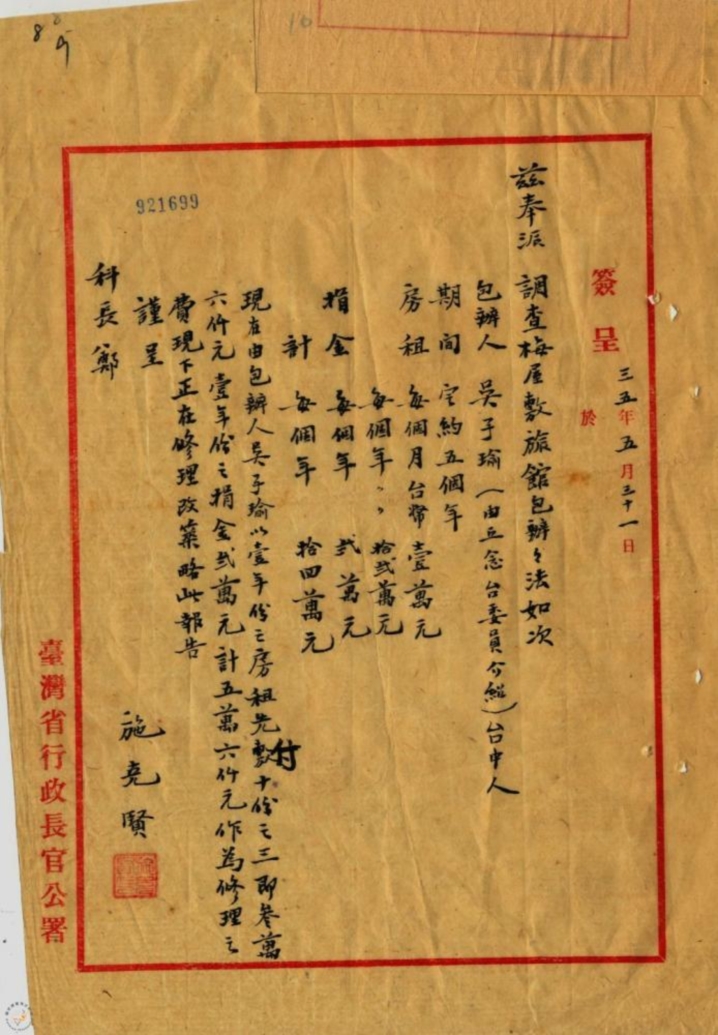 簽呈
三五年五月三十一日
於
茲奉派 調查梅屋敷旅館包辦々法如次
包辦人 吳子瑜(由丘念台委員介紹)台中人
期間 定約五個年
房租 每個月台幣壹萬元
每個年〃拾弍萬元
捐金 每個年 弍萬元
計 每個年 拾四萬元
現在由包辦人吳子瑜以壹年份之房租先付數十份之三即參萬
六仟元壹年份之捐金弍萬元計五萬六仟元作為修理之
費現下正在修理改築略此報告
謹呈
科長鄭
施堯賢
臺灣省行政長官公署
921699